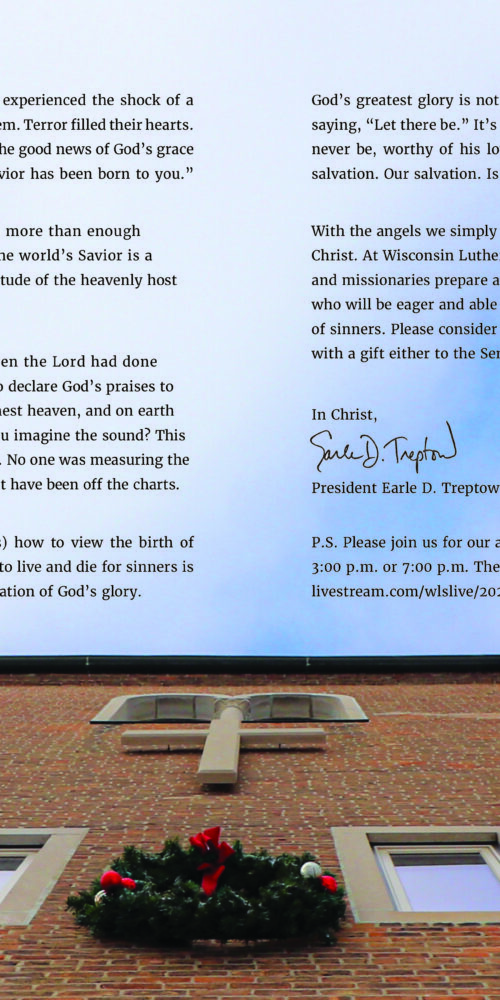 experienced the shock of a
em. Terror filled their hearts.
he good news of God's grace
vior has been born to you."
more than enough
ne world's Savior is a
tude of the heavenly host
en the Lord had done
o declare God's praises to
nest heaven, and on earth
u imagine the sound? This
. No one was measuring the
t have been off the charts.
s) how to view the birth of
to live and die for sinners is
ation of God's glory.
God's greatest glory is not
saying, "Let there be." It's
never be, worthy of his lo
salvation. Our salvation. Is
With the angels we simply
Christ. At Wisconsin Luthe
and missionaries prepare a
who will be eager and able
of sinners. Please consider
with a gift either to the Sem
In Christ,
Earle D. Treptow
President Earle D. Treptow
P.S. Please join us for our a
3:00 p.m. or 7:00 p.m. The
livestream.com/wlslive/202